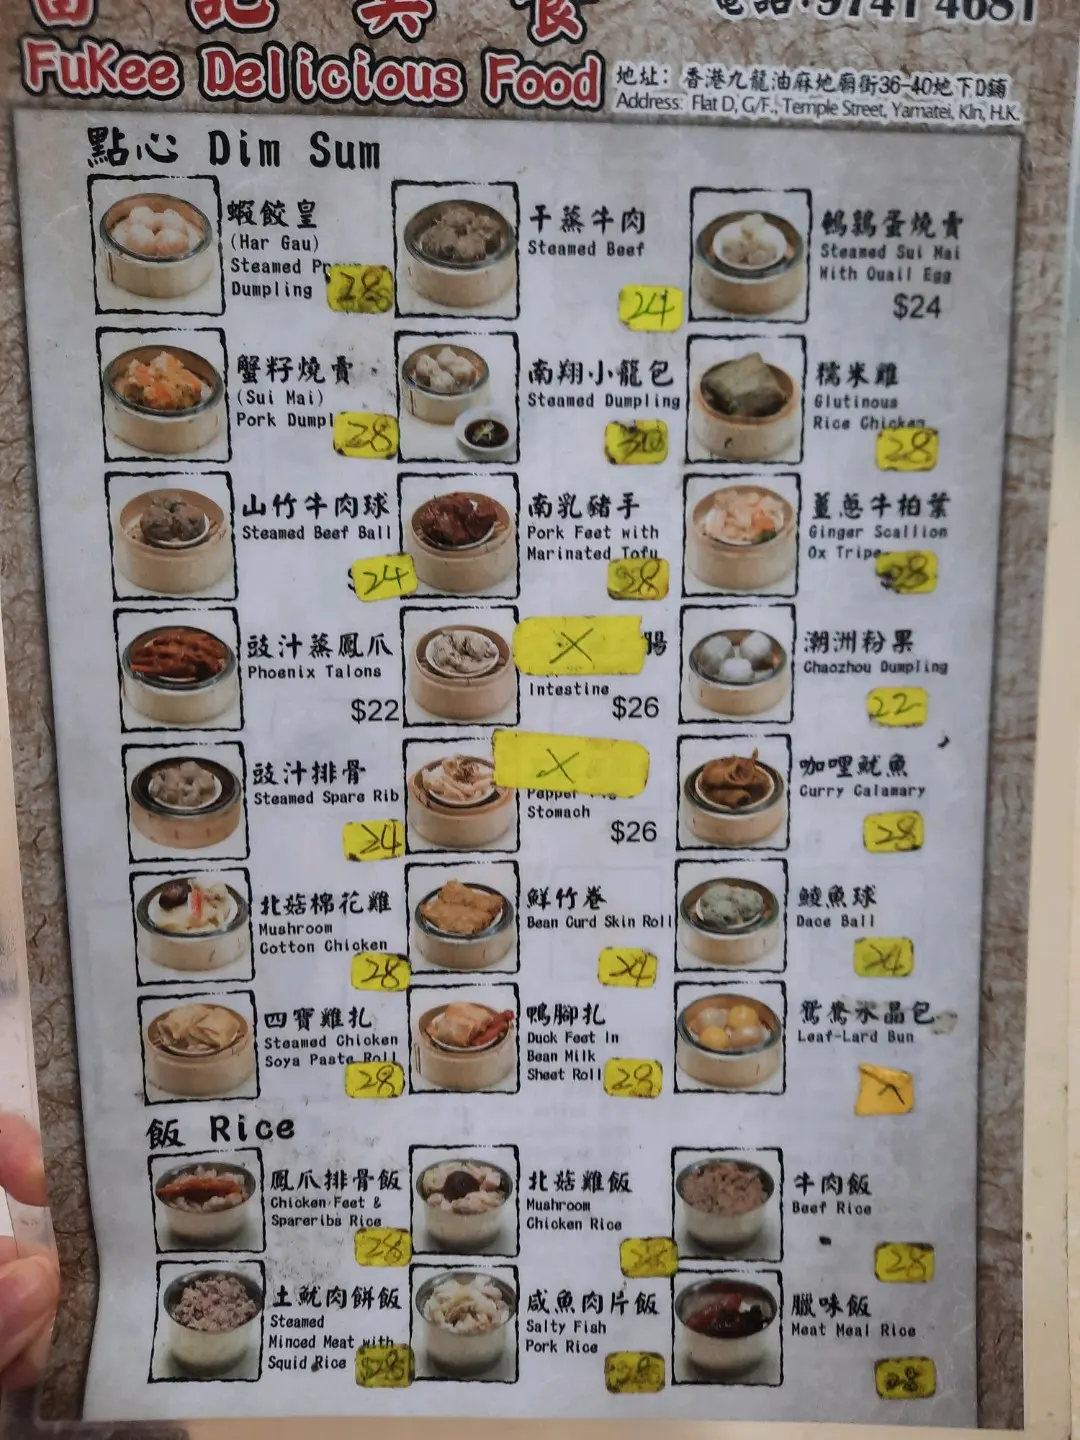 記美食
電話:9741 4681
FuKee Delicious Food
地址：香港九龍油麻地廟街36-40地下D鋪
Address: Flat D, G/F., Temple Street, Yamatei, Kln, H.K.
點心 Dim Sum
蝦餃皇
(Har Gau)
Steamed
Dumpling
28
干蒸牛肉
Steamed Beef
24
鵪鶉蛋燒賣
Steamed Sui Mai
With Quail Egg
$24
蟹籽燒賣
(Sui Mai)
Pork Dumpl
28
南翔小籠包
Steamed Dumpling
30
糯米雞
Glutinous
Rice Chicken
28
山竹牛肉球
Steamed Beef Ball
24
南乳豬手
Pork Feet with
Marinated Tofu
28
薑蔥牛柏葉
Ginger Scallion
Ox Tripe
28
豉汁蒸鳳爪
Phoenix Talons
$22
X
腸
Intestine
$26
潮洲粉果
Chaozhou Dumpling
22
豉汁排骨
Steamed Spare Rib
24
X
Pepper
Stomach
$26
咖哩魷魚
Curry Calamary
28
北菇棉花雞
Mushroom
Cotton Chicken
28
鮮竹卷
Bean Curd Skin Roll
24
鯪魚球
Dace Ball
24
四寶雞扎
Steamed Chicken
Soya Paste Roll
28
鴨腳扎
Duck Feet In
Bean Milk
Sheet Roll
28
鴛鴦水晶包
Leaf-Lard Bun
X
飯 Rice
鳳爪排骨飯
Chicken Feet &
Spareribs Rice
28
北菇雞飯
Mushroom
Chicken Rice
28
牛肉飯
Beef Rice
28
土魷肉餅飯
Steamed
Minced Meat with
Squid Rice
28
咸魚肉片飯
Salty Fish
Pork Rice
28
臘味飯
Meat Meal Rice
28